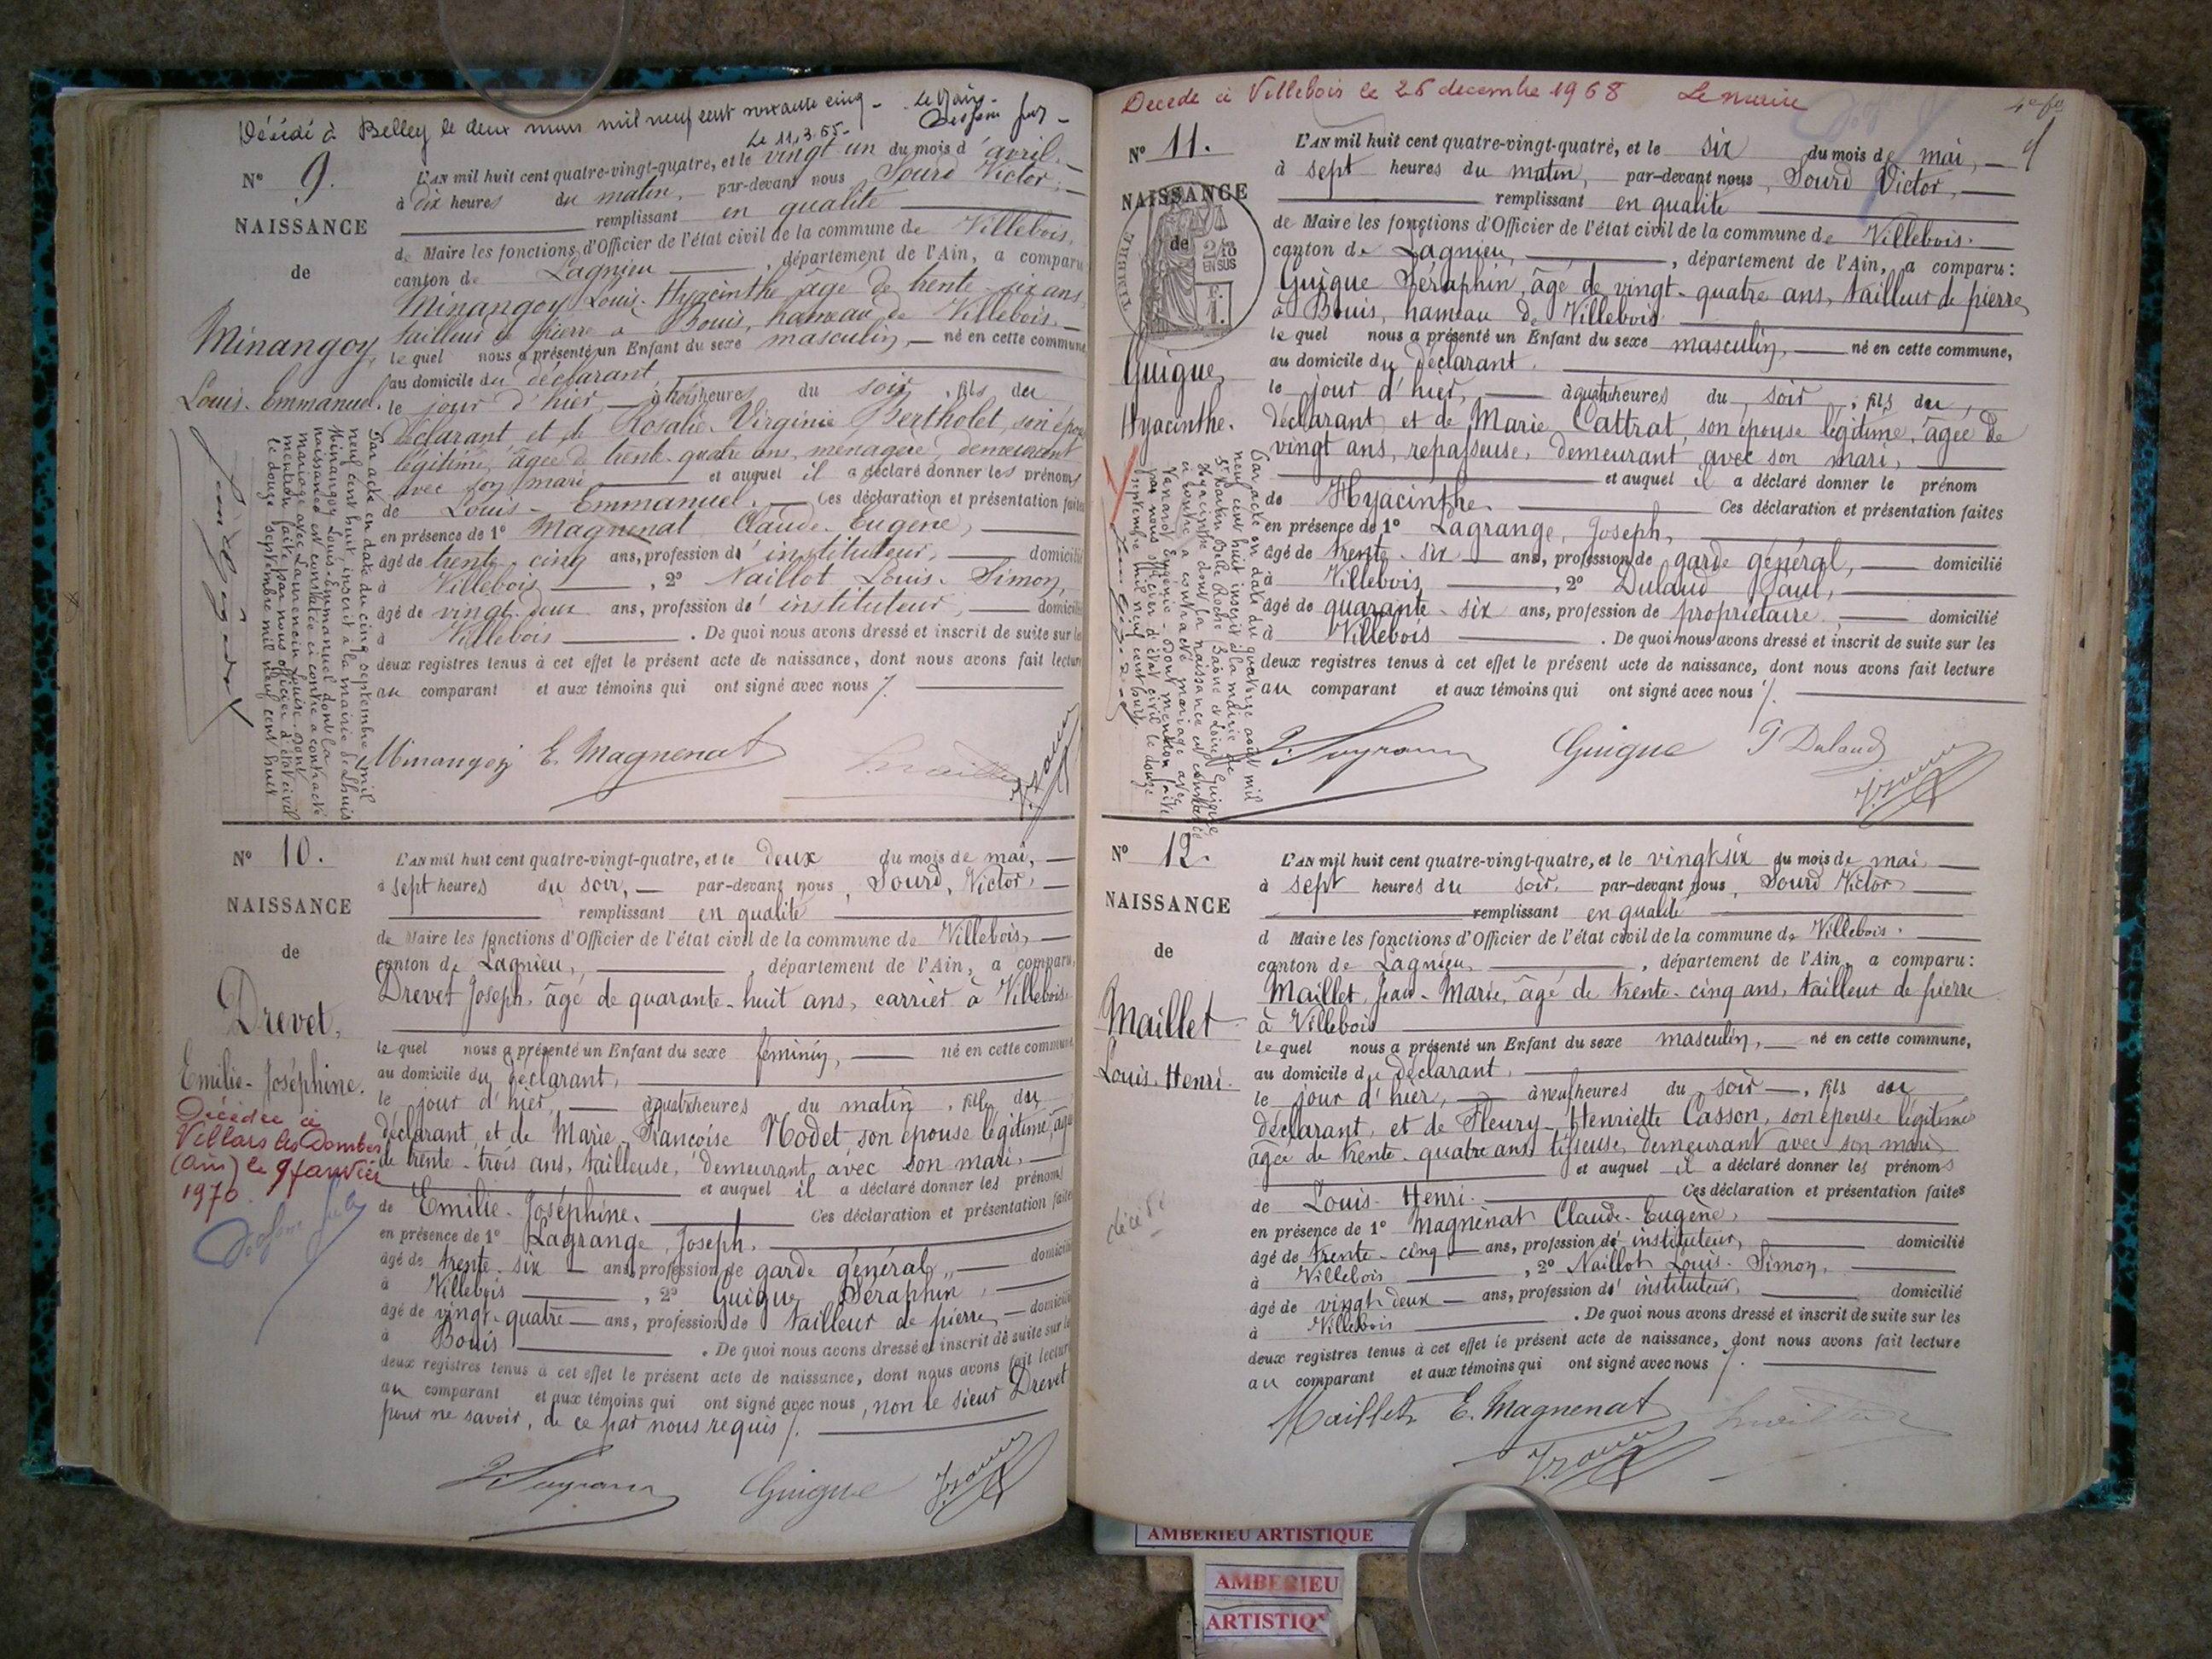 Décédé à Belley le deux mars mil neuf cent soixante cinq - Le Maire -
Le 11.3.65 -
N° 9.
NAISSANCE
de
Minangoy,
Louis-Emmanuel.
L'AN mil huit cent quatre-vingt-quatre, et le vingt un du mois d'avril,
à dix heures du matin, par-devant nous Sourd Victor,
remplissant en qualité
de Maire les fonctions d'Officier de l'état civil de la commune de Villebois,
canton de Lagnieu, département de l'Ain, a comparu
Minangoy Louis-Hyacinthe âgé de trente-six ans,
tailleur de pierre à Bouis, hameau de Villebois.
lequel nous a présenté un Enfant du sexe masculin, né en cette commune
au domicile du déclarant,
le jour d'hier, à trois heures du soir, fils du
déclarant et de Rosalie-Virginie Bertholet, son épouse
légitime, âgée de trente-quatre ans, ménagère, demeurant
avec son mari et auquel il a déclaré donner les prénoms
de Louis-Emmanuel. Ces déclaration et présentation faites
en présence de 1° Magnenat Claude-Eugène,
âgé de trente cinq ans, profession d'instituteur, domicilié
à Villebois, 2° Naillot Louis-Simon,
âgé de vingt-deux ans, profession d'instituteur, domicilié
à Villebois. De quoi nous avons dressé et inscrit de suite sur les
deux registres tenus à cet effet le présent acte de naissance, dont nous avons fait lecture
au comparant et aux témoins qui ont signé avec nous /.
Par acte en date du cinq septembre mil
neuf cent huit, inscrit à la mairie de Lhuis
Minangoy Louis-Emmanuel dont la
naissance est constatée ci contre a contracté
mariage avec Laurencin Louise. Dont
mention faite par nous officier d'état civil
le douze septembre mil neuf cent huit
Minangoy E. Magnenat
N° 10.
NAISSANCE
de
Drevet,
Emilie-Joséphine.
Décédée à
Villars les Dombes
(Ain) le 9 janvier
1970
L'AN mil huit cent quatre-vingt-quatre, et le deux du mois de mai,
à sept heures du soir, par-devant nous, Sourd, Victor,
remplissant en qualité
de Maire les fonctions d'Officier de l'état civil de la commune de Villebois,
canton de Lagnieu, département de l'Ain, a comparu,
Drevet Joseph, âgé de quarante-huit ans, carrier à Villebois.
lequel nous a présenté un Enfant du sexe féminin, né en cette commune
au domicile du déclarant,
le jour d'hier, à quatre heures du matin, fille du
déclarant, et de Marie-Françoise Nodet, son épouse légitime, âgée
de trente-trois ans, tailleuse, demeurant avec son mari,
et auquel il a déclaré donner les prénoms
de Emilie-Joséphine. Ces déclaration et présentation faites
en présence de 1° Lagrange, Joseph.
âgé de trente-six ans, profession de garde général, domicilié
à Villebois, 2° Guigue Séraphin,
âgé de vingt-quatre ans, profession de tailleur de pierre, domicilié
à Bouis. De quoi nous avons dressé et inscrit de suite sur les
deux registres tenus à cet effet le présent acte de naissance, dont nous avons fait lecture
au comparant et aux témoins qui ont signé avec nous, non le sieur Drevet
pour ne savoir, de ce par nous requis /.
Guigue
Décédé à Villebois le 26 decembre 1968 Le maire
N° 11.
NAISSANCE
de
TIMBRE
2/10
EN SUS
Guigue,
Hyacinthe.
L'AN mil huit cent quatre-vingt-quatre, et le six du mois de mai,
à sept heures du matin, par-devant nous, Sourd Victor,
remplissant en qualité
de Maire les fonctions d'Officier de l'état civil de la commune de Villebois.
canton de Lagnieu, département de l'Ain, a comparu :
Guigue Séraphin, âgé de vingt-quatre ans, tailleur de pierre
à Bouis, hameau de Villebois
lequel nous a présenté un Enfant du sexe masculin, né en cette commune,
au domicile du déclarant.
le jour d'hier, à quatre heures du soir, fils du,
déclarant et de Marie Cattrat, son épouse légitime, âgée de
vingt ans, repasseuse, demeurant avec son mari,
et auquel il a déclaré donner le prénom
de Hyacinthe. Ces déclaration et présentation faites
en présence de 1° Lagrange, Joseph,
âgé de trente-six ans, profession de garde général, domicilié
à Villebois, 2° Dulaud Paul,
âgé de quarante-six ans, profession de propriétaire, domicilié
à Villebois. De quoi nous avons dressé et inscrit de suite sur les
deux registres tenus à cet effet le présent acte de naissance, dont nous avons fait lecture
au comparant et aux témoins qui ont signé avec nous /.
Par acte en date du quatorze août mil
neuf cent huit inscrit à la mairie de
St Martin Belle Roche Saône et Loire, Guigue
Hyacinthe dont la naissance est constatée
ci contre a contracté mariage avec
Eugénie - Dont mention faite
par nous officier d'état civil le douze
septembre mil neuf cent huit
Guigue P Dulaud
N° 12.
NAISSANCE
de
Maillet
Louis-Henri.
décédé
L'AN mil huit cent quatre-vingt-quatre, et le vingt six du mois de mai
à sept heures du soir, par-devant nous, Sourd Victor
remplissant en qualité
d Maire les fonctions d'Officier de l'état civil de la commune de Villebois.
canton de Lagnieu, département de l'Ain, a comparu :
Maillet Jean-Marie, âgé de trente-cinq ans, tailleur de pierre
à Villebois
lequel nous a présenté un Enfant du sexe masculin, né en cette commune,
au domicile du déclarant,
le jour d'hier, à neuf heures du soir, fils du
déclarant, et de Fleury-Henriette Casson, son épouse légitime
âgée de trente-quatre ans, tisseuse, demeurant avec son mari
et auquel il a déclaré donner les prénoms
de Louis-Henri. Ces déclaration et présentation faites
en présence de 1° Magnenat Claude-Eugène,
âgé de trente-cinq ans, profession d'instituteur, domicilié
à Villebois, 2° Naillot Louis-Simon,
âgé de vingt-deux ans, profession d'instituteur, domicilié
à Villebois. De quoi nous avons dressé et inscrit de suite sur les
deux registres tenus à cet effet le présent acte de naissance, dont nous avons fait lecture
au comparant et aux témoins qui ont signé avec nous /.
Maillet E. Magnenat
AMBERIEU ARTISTIQUE
AMBERIEU
ARTISTIQ